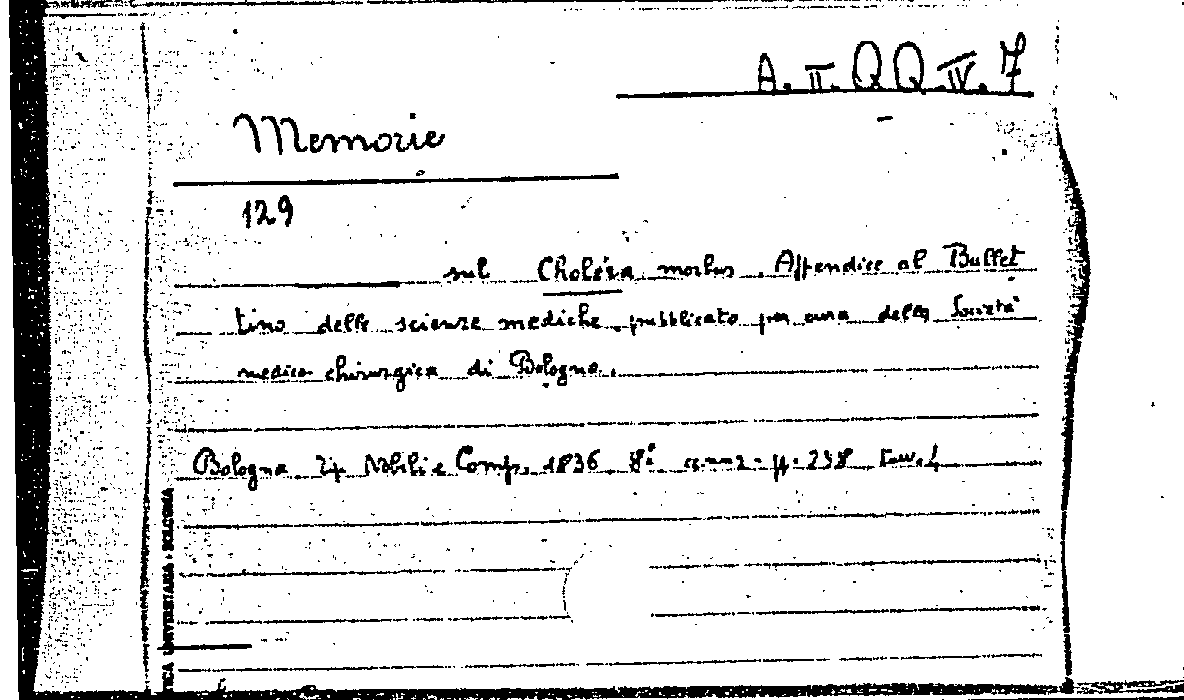 A. II. QQ IV. 7
Memorie
129
sul Choléra morbus. Appendice al Bullet
tino delle scienze mediche pubblicato per cura della Società
medico chirurgica di Bologna.
Bologna Tip. Nobili e Comp. 1836 8º pp. 238 tav. 1
UNIVERSITARIA • BOLOGNA